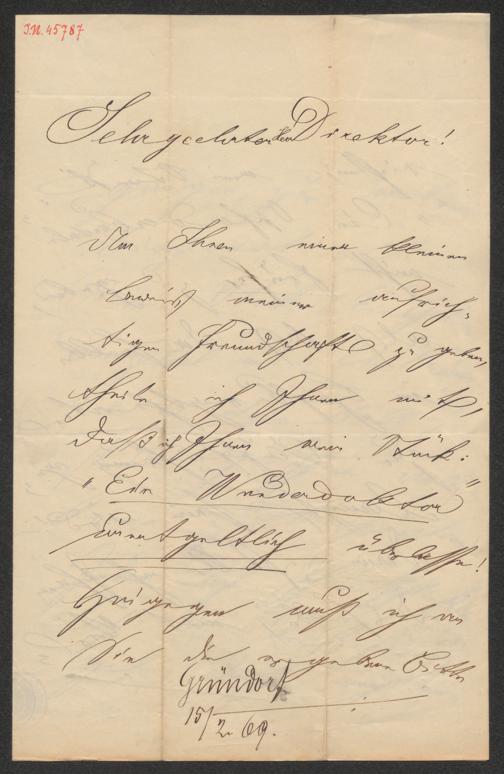 I.N. 45787
Sehrgeehrter Herr Direktor!
Um Ihnen einen kleinen
Beweis meiner aufrich-
tigen Freundschaft zu geben,
theile ich Ihnen mit,
daß ich Ihnen mein Stück:
"Ein Wunderdoktor"
unentgeltlich überlasse!
Hingegen muß ich an
Sie die ergebene Bitte
Gründorf
15/2. 69.